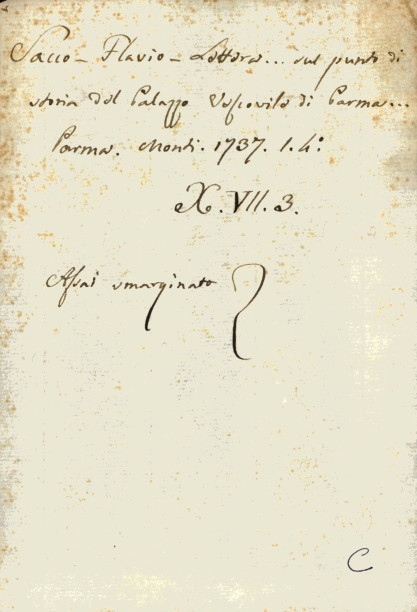 Sacco - Flavio - Lettera... sul punto di
storia del Palazzo Vescovile di Parma...
Parma. Monti. 1737. 1. 4:
X. VII. 3.
Assai smarginato
C